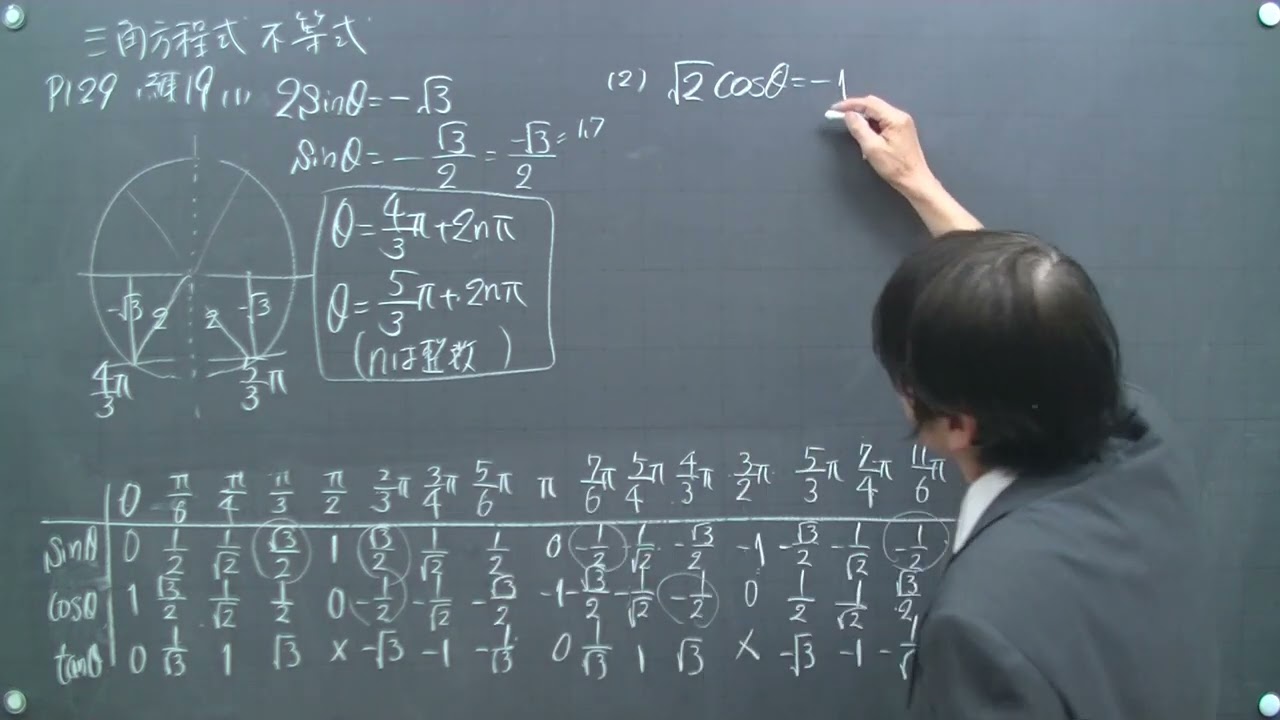 三角方程式 不等式
P129 練19 (1) 2sinθ=-√3
sinθ=-√3/2=-√3/2=1.7
θ=4/3π+2nπ
θ=5/3π+2nπ
(nは整数)
-√3 2 2 -√3
4/3π 5/3π
(2) √2cosθ=-1
0 π/6 π/4 π/3 π/2 2/3π 3/4π 5/6π π 7/6π 5/4π 4/3π 3/2π 5/3π 7/4π 11/6π
sinθ 0 1/2 1/√2 √3/2 1 √3/2 1/√2 1/2 0 -1/2 -1/√2 -√3/2 -1 -√3/2 -1/√2 -1/2
cosθ 1 √3/2 1/√2 1/2 0 -1/2 -1/√2 -√3/2 -1 -√3/2 -1/√2 -1/2 0 1/2 1/√2 √3/2
tanθ 0 1/√3 1 √3 × -√3 -1 -1/√3 0 1/√3 1 √3 × -√3 -1